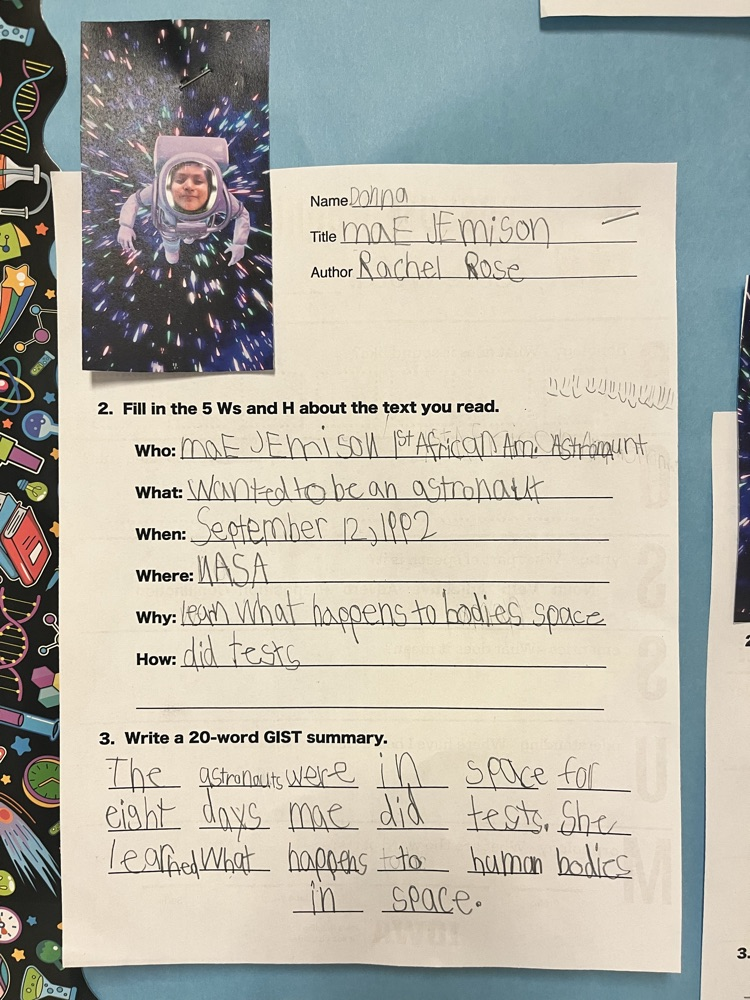 Name Donna
Title maE JEmison
Author Rachel Rose
2. Fill in the 5 Ws and H about the text you read.
Who: maE JEmison 1st African Am. Astronaunt
What: Wanted to be an astronaut
When: September 12, 1992
Where: NASA
Why: learn what happens to bodies space
How: did tests
3. Write a 20-word GIST summary.
The astronauts were in space for
eight days mae did tests. She
learned what happens to human bodies
in space.
3.